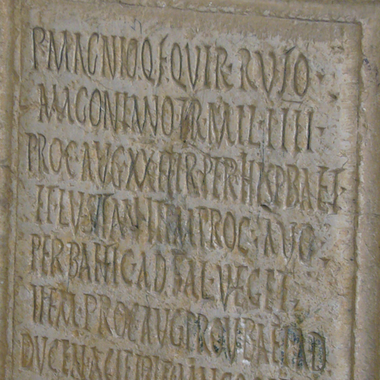 P·MAGNIO·Q·F·QVIR·RVFO
MAGONIANO·TR·MIL·IIII
PROC·AVG·XX·HER·PER·HISP·BAET
ET LVSITAN·ITEM·PROC·AVG
PER·BAETIC·AD·FAL·VEGET
ITEM·PROC·AVG·PROV·BAET·AD
DVCEN